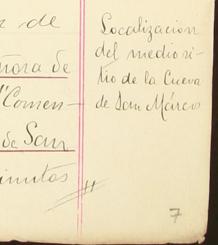 de
ñora de
d'Comen-
de San
inutos
Localización
del medio si-
tio de la Cueva
de San Márcos
7